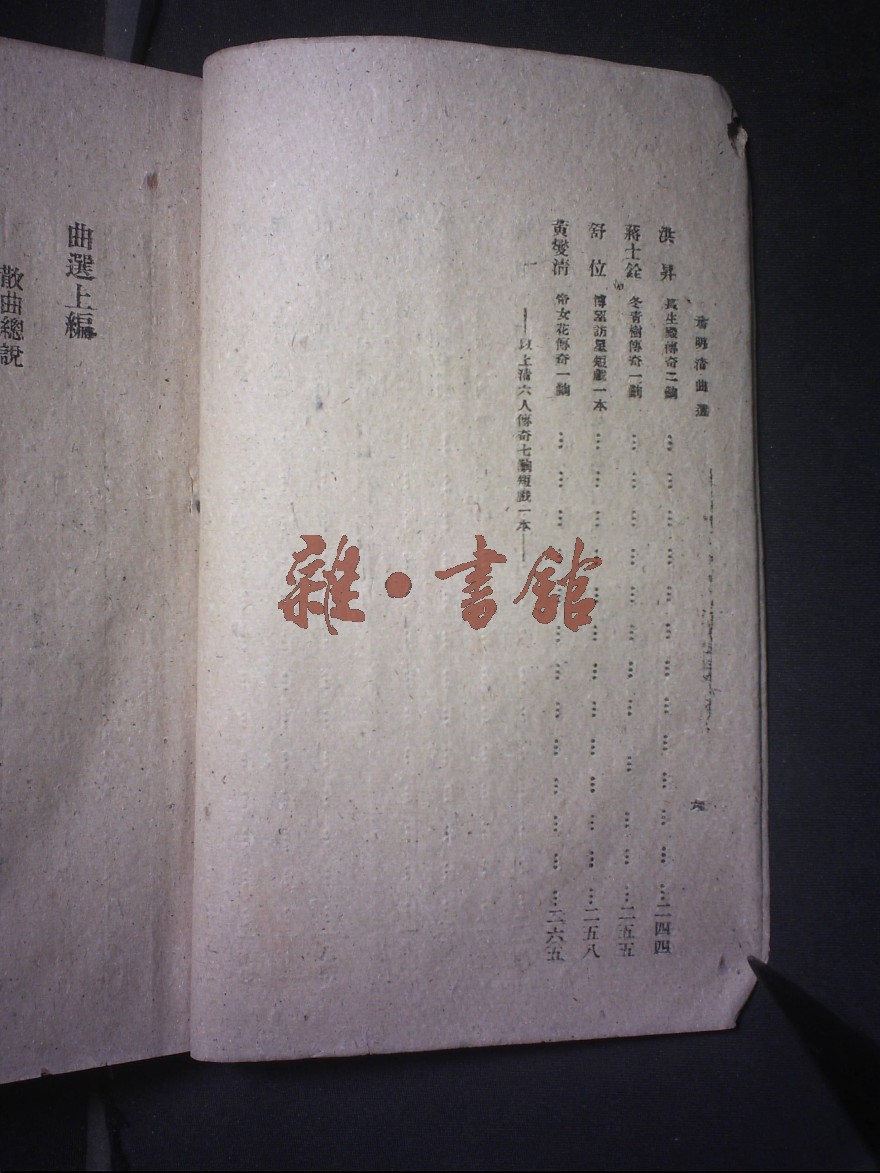 元明清曲選
六
洪昇 長生殿傳奇二齣 … … … … … … … 二四四
蔣士銓 冬青樹傳奇一齣 … … … … … … … 二五五
舒位 博望訪星短戲一本 … … … … … … … 二五八
黃燮清 帝女花傳奇一齣 … … … … … … … 二六五
——以上清六人傳奇七齣短戲一本——
曲選上編
散曲總說
雜·書館